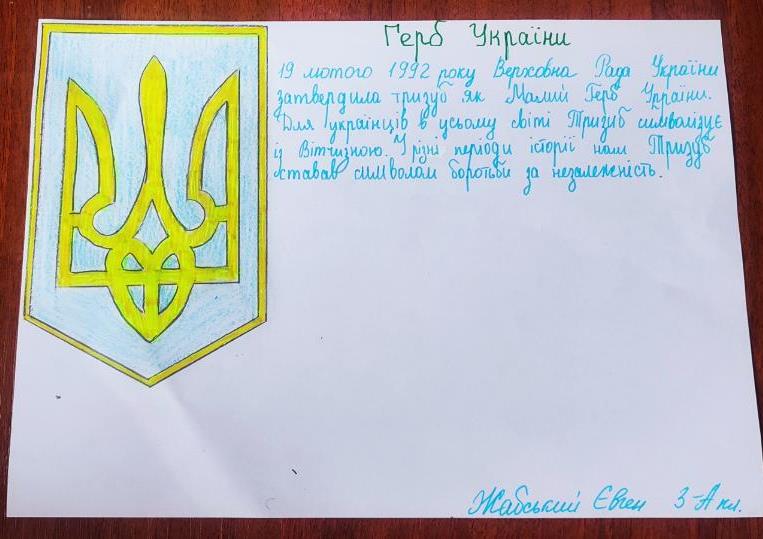 Герб України
19 лютого 1992 року Верховна Рада України
затвердила тризуб як Малий Герб України.
Для українців в усьому світі Тризуб символізує
із Вітчизною. У різні періоди історії нам Тризуб
ставав символом боротьби за незалежність.
Жабський Євген 3-А кл.